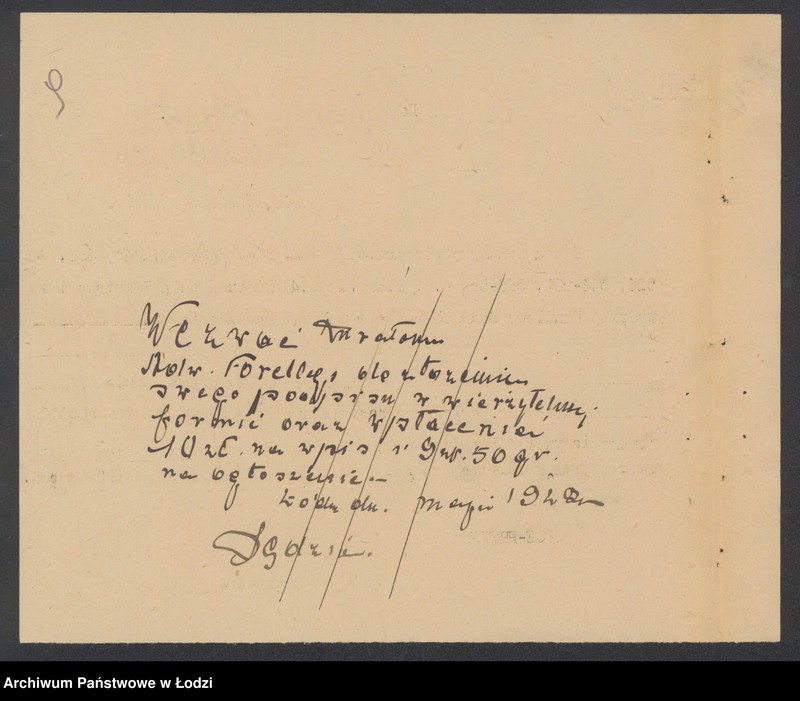 9
Wezwać
Adw. Forellę, do złożenia
swego podpisu w wierzytelnej
formie oraz wpłacenia
10 zł. na wpis i 9 zł. 50 gr.
na ogłoszenie.-
Łódź dn. maja 192
Sędzia.
Archiwum Państwowe w Łodzi